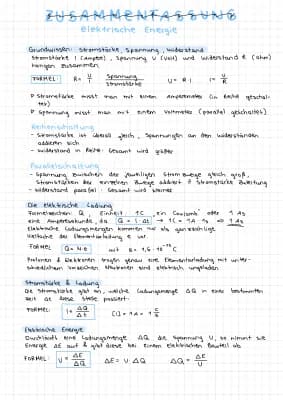 ZUSAMMENFASSUNG
elektrische Energie
Grundwissen: Stromstärke, Spannung, Widerstand
Stromstärke I (Ampere), Spannung U (Volt) und Widerstand R (Ohm)
hängen zusammen:
FORMEL: R = U/I Spannung/Stromstärke U = R·I I = U/R
Stromstärke misst man mit einem Amperemeter (in Reihe geschal-
tet)
Spannung misst man mit einem Voltmeter (parallel geschaltet)
Reihenschaltung
- Stromstärke ist überall gleich, Spannungen an den Widerständen
addieren sich
- Widerstand in Reihe: Gesamt wird größer
Parallelschaltung
- Spannung zwischen den jeweiligen Stromzweigen gleich groß,
Stromstärken der einzelnen Zweige addiert = Stromstärke Zuleitung
- Widerstand parallel: Gesamt wird kleiner
Die elektrische Ladung
Formelzeichen: Q, Einheit 1C ein Coulomb oder 1 As
eine Amperesekunde, da Q = I·Δt → 1C = 1A·1s → 1As
Elektrische Ladungsmengen kommen nur als ganzzahlige
Vielfache der Elementarladung e vor.
FORMEL: Q = N·e mit e = 1,6·10⁻¹⁹ C
Protonen & Elektronen tragen genau eine Elementarladung mit unter-
schiedlichen Vorzeichen. Neutronen sind elektrisch ungeladen
Stromstärke & Ladung
Die Stromstärke gibt an, welche Ladungsmenge ΔQ in einer bestimmten
Zeit Δt diese Stelle passiert.
FORMEL: I = ΔQ/Δt [I] = 1A = 1 C/s
Elektrische Energie
Durchläuft eine Ladungsmenge ΔQ die Spannung U, so nimmt sie
Energie ΔE auf & gibt diese bei einem elektrischen Bauteil ab
FORMEL: U = ΔE/ΔQ ΔE = U·ΔQ ΔQ = ΔE/U